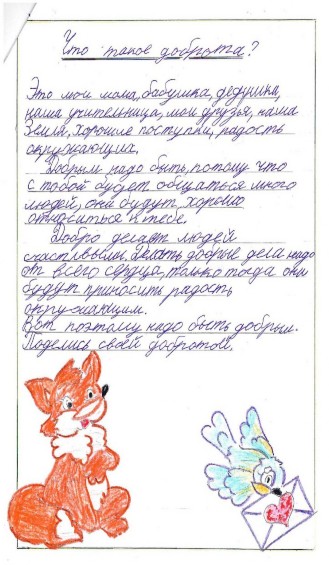 Что такое доброта?
Это мои мама, бабушка, дедушка,
наша учительница, мои друзья, наша
Земля, хорошие поступки, радость
окружающих.
Добрым надо быть, потому что
с тобой будет общаться много
людей, они будут хорошо
относиться к тебе.
Добро делает людей
счастливыми. Делать добрые дела надо
от всего сердца, только тогда они
будут приносить радость
окружающим.
Вот поэтому надо быть добрым.
Поделись своей добротой.